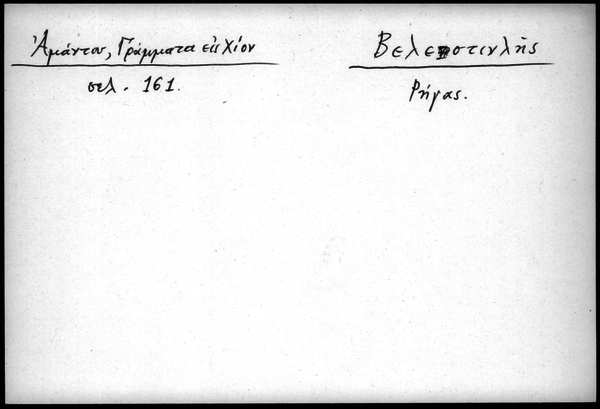 Ἀμάντου, Γράμματα εἰς Χίον
σελ. 161.
Βελεστινλῆς
Ρήγας.